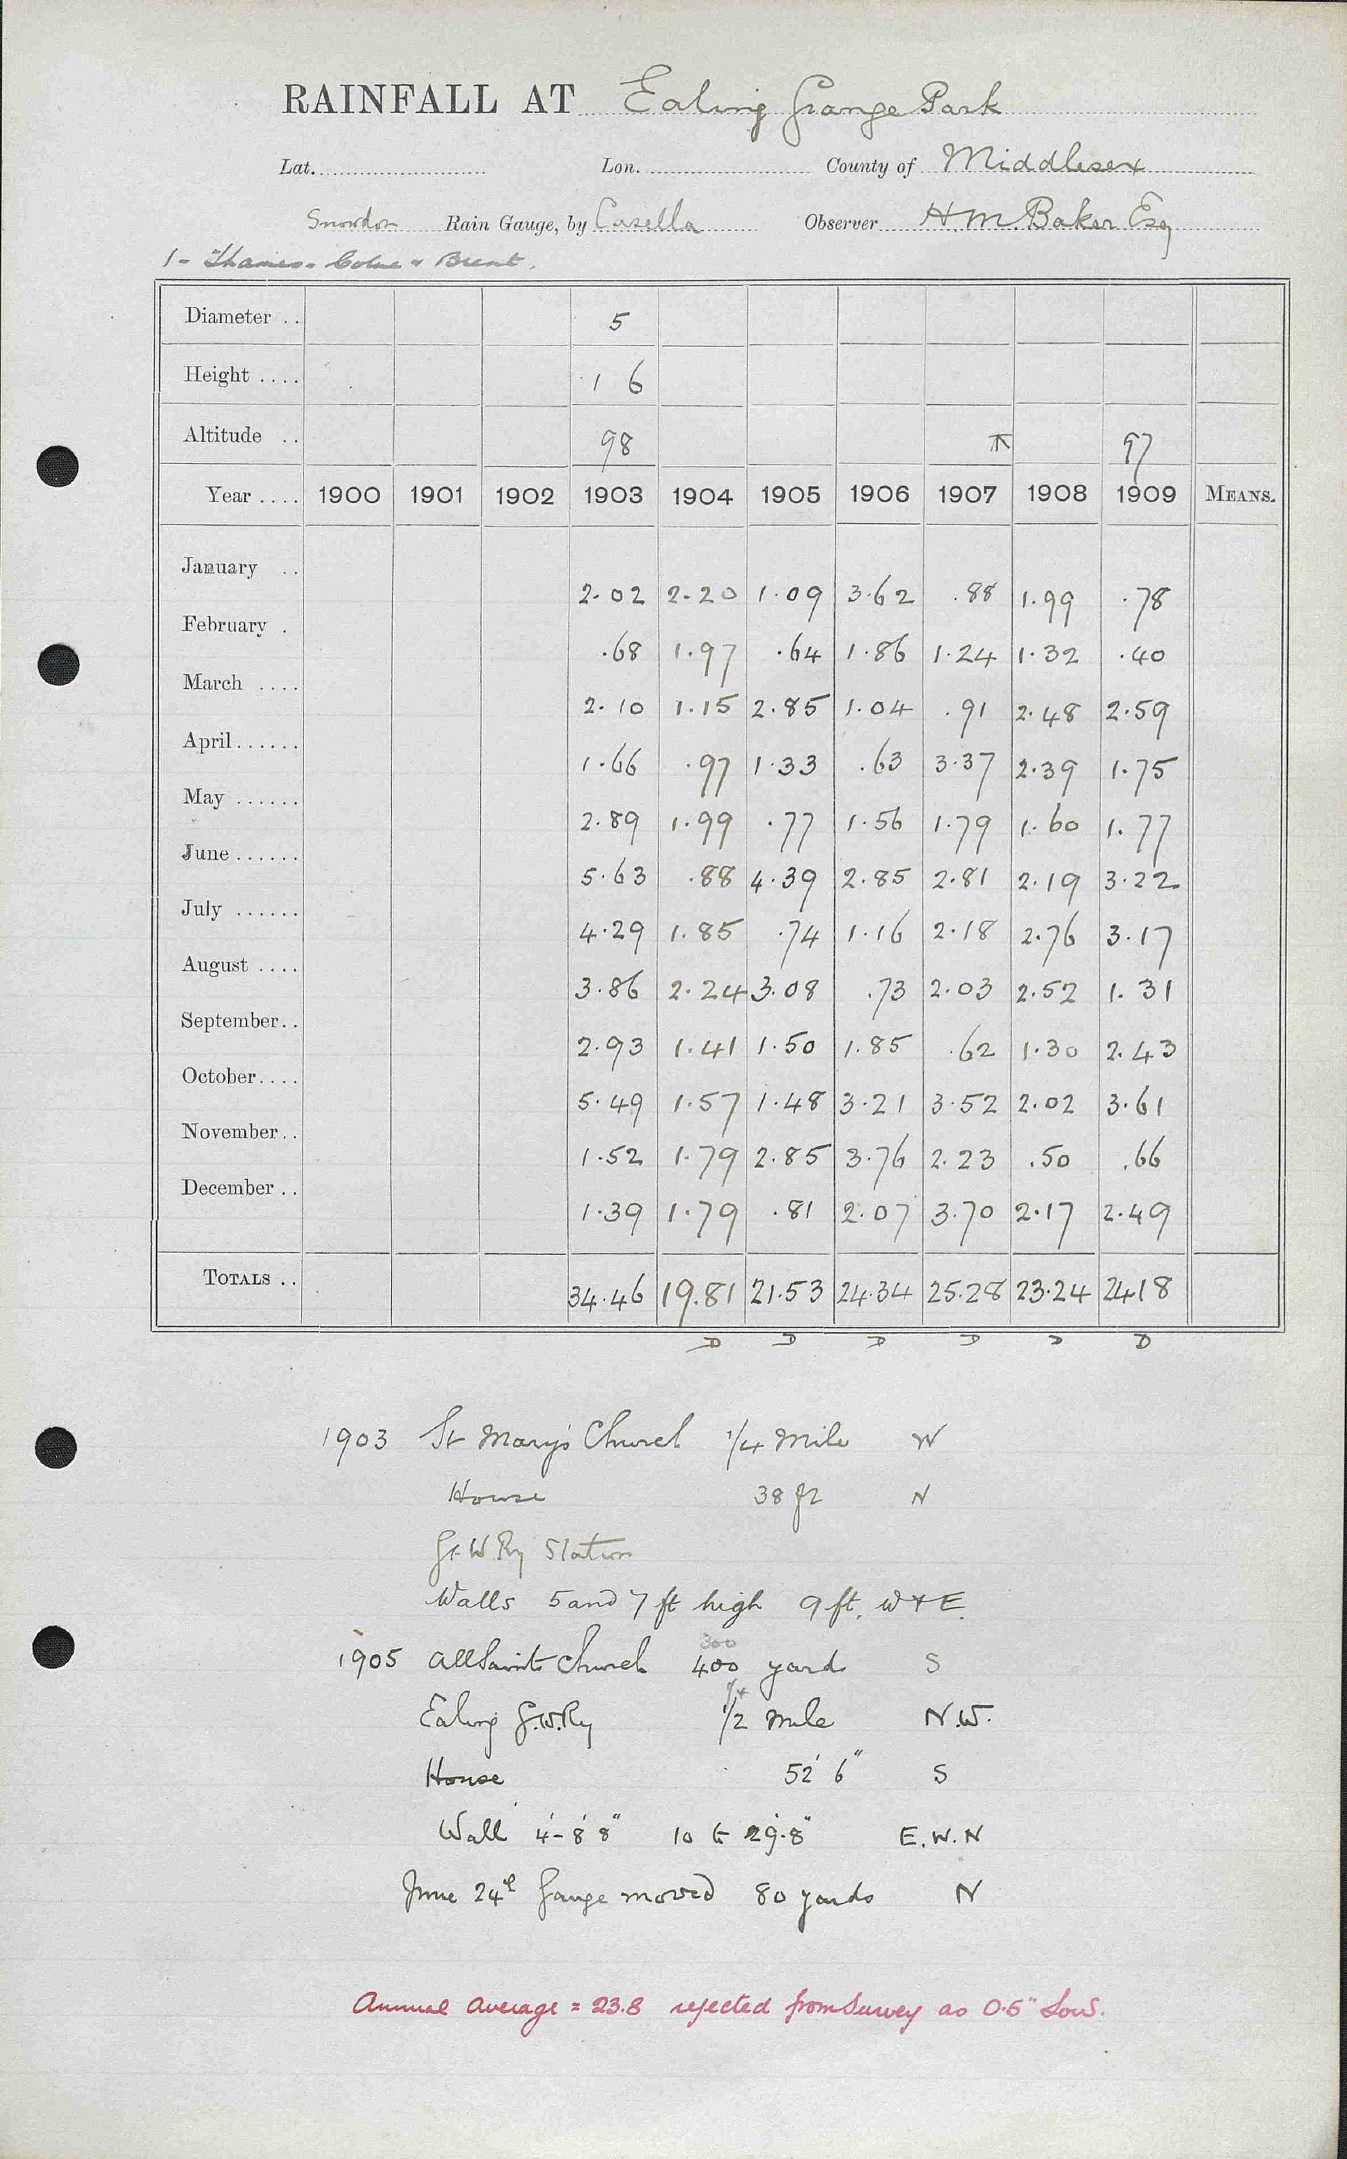 RAINFALL AT Ealing Grange Park
Lat. Lon. County of Middlesex
Snowdon Rain Gauge, by Casella Observer H. M. Baker Esq
1 - Thames - Colne & Brent.
Diameter .. 5
Height .... 1 6
Altitude .. 98 97
Year .... 1900 1901 1902 1903 1904 1905 1906 1907 1908 1909 MEANS.
January .. 2.02 2.20 1.09 3.62 .88 1.99 .78
February . .68 1.97 .64 1.86 1.24 1.32 .40
March .... 2.10 1.15 2.85 1.04 .91 2.48 2.59
April...... 1.66 .97 1.33 .63 3.37 2.39 1.75
May ...... 2.89 1.99 .77 1.56 1.79 1.60 1.77
June ...... 5.63 .88 4.39 2.85 2.81 2.19 3.22
July ...... 4.29 1.85 .74 1.16 2.18 2.76 3.17
August .... 3.86 2.24 3.08 .73 2.03 2.52 1.31
September.. 2.93 1.41 1.50 1.85 .62 1.30 2.43
October.... 5.49 1.57 1.48 3.21 3.52 2.02 3.61
November.. 1.52 1.79 2.85 3.76 2.23 .50 .66
December .. 1.39 1.79 .81 2.07 3.70 2.17 2.49
TOTALS .. 34.46 19.81 21.53 24.34 25.28 23.24 24.18
D D D D D D
1903 St Mary's Church 1/4 Mile W
House 38 ft N
Gt W Ry Station
Walls 5 and 7 ft high 9 ft. W & E.
300
1905 All Saints Church 400 yards S
1/4
Ealing G.W.Ry 1/2 mile N.W.
House 52' 6" S
Wall 4'-8' 8" 10 to 29'.8" E. W. N
June 24th Gauge moved 80 yards N
Annual Average = 23.8 rejected from Survey as 0.5" Low.